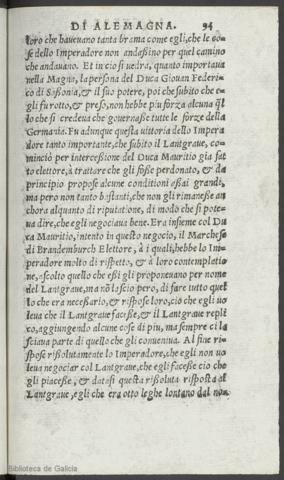 DI ALEMAGNA. 94
loro che haueuano tanta brama come egli, che le co-
se dello Imperadore non andaßino per quel camino
che andauano. Et in cio si uedra, quanto importaua
nella Magna, la persona del Duca Giouan Federi-
co di Saßonia, & il suo potere, poi che subito che e-
gli fu rotto, & preso, non hebbe piu forza alcuna q̃l
lo che si credeua che gouernaße tutte le forze della
Germania. Fu adunque questa uittoria dello Impera
dore tanto importante, che subito il Lantgraue, co-
minciò per interceßione del Duca Mauritio gia fat
to elettore, à trattare che gli fuße perdonato, & da
principio propose alcune conditioni aßai grandi,
ma pero non tanto bastanti, che non gli rimaneße an
chora alquanto di riputatione, di modo che si pote-
ua dire, che egli negociaua bene. Era insieme col Du
ca Mauritio, intento in questo negocio, il Marchese
di Brandemburch Elettore, à i quali, hebbe lo Im-
peradore molto di rispetto, & à loro contemplatio
ne, ascolto quello che eßi gli proponeuano per nome
del Lantgraue, ma nõ lascio pero, di fare tutto quel
lo che era neceßario, & rispose loro, cio che egli uo
leua che il Lantgraue faceße, & il Lantgraue repli
co, aggiungendo alcune cose di piu, ma sempre ci la
sciaua parte di quello che gli conueniua. Al fine ri-
spose rißolutamente lo Imperadore, che egli non uo
leua negociar col Lantgraue, che egli faceße cio che
gli piaceße, & datasi questa rißoluta risposta al
Lantgraue, egli che era otto leghe lontano dal non
Biblioteca de Galicia